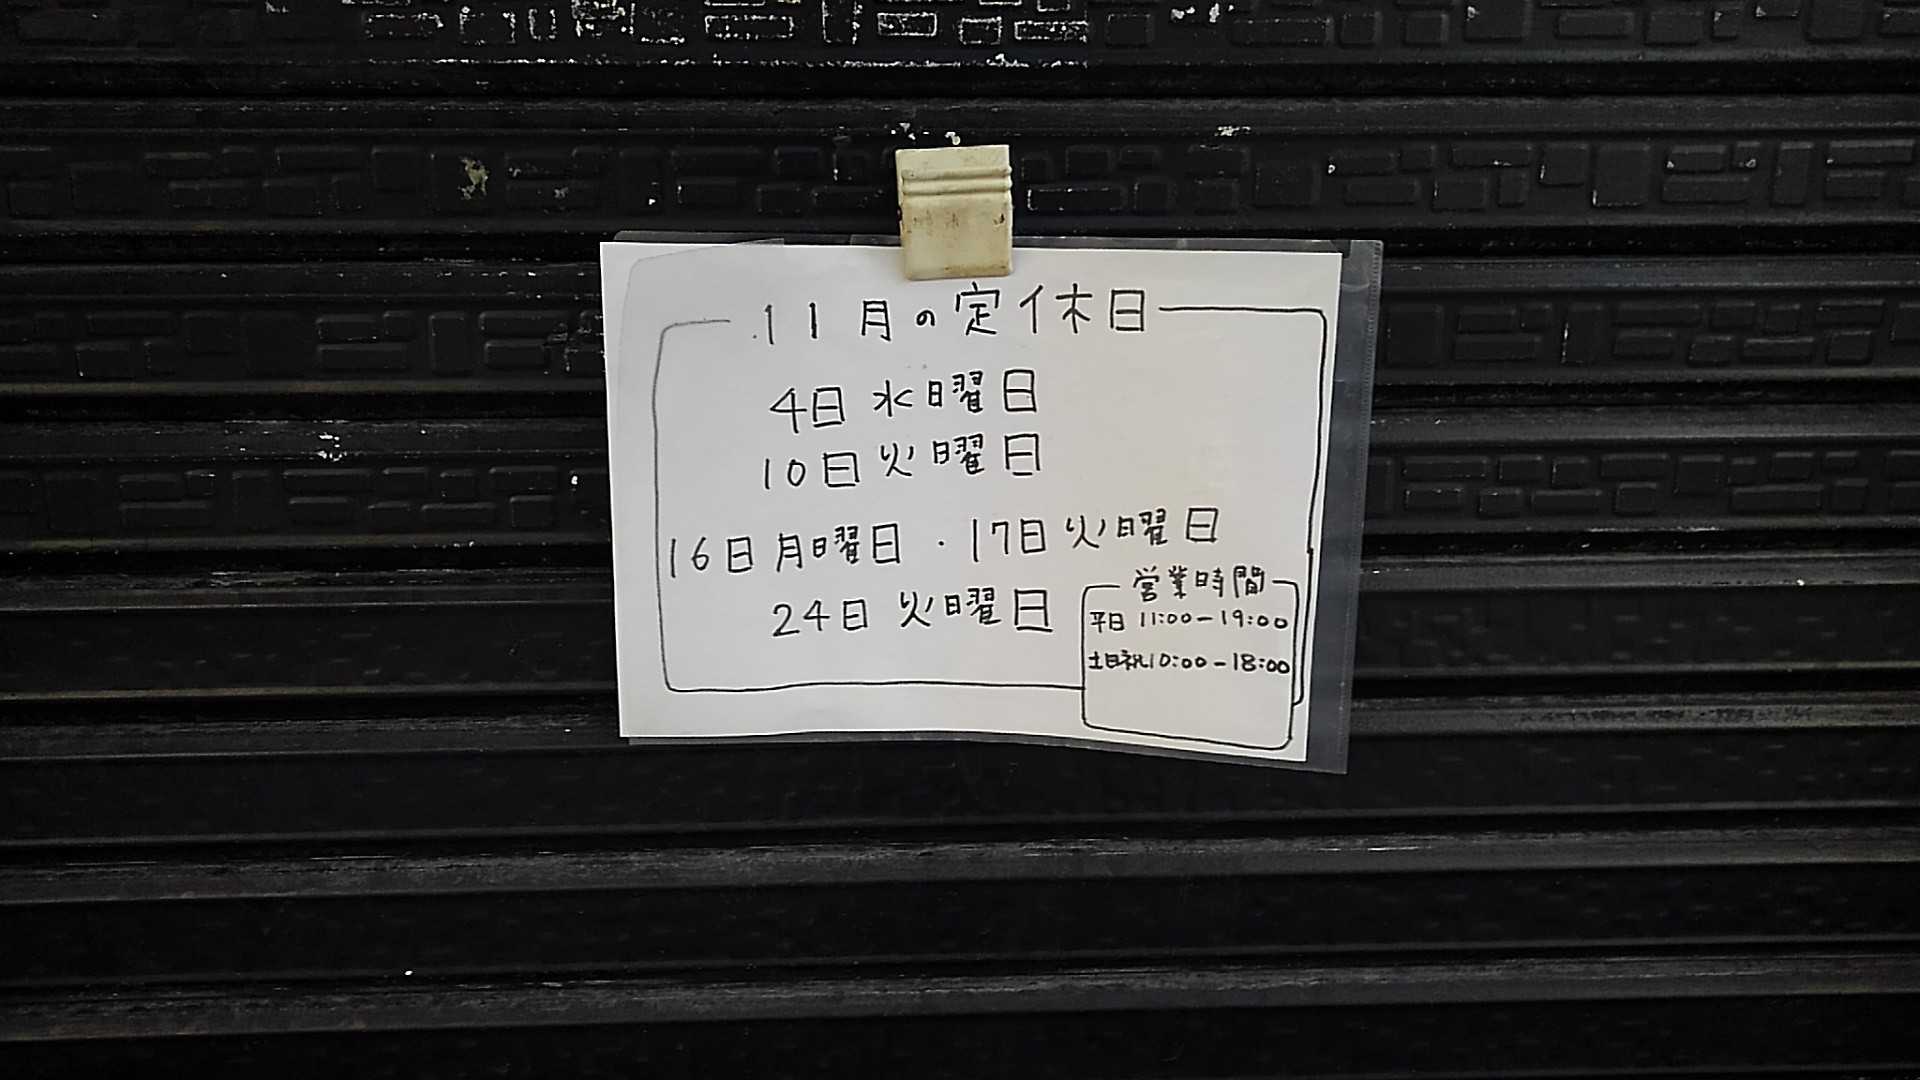 11月の定休日
4日 水曜日
10日 火曜日
16日 月曜日・17日 火曜日
24日 火曜日
営業時間
平日 11:00-19:00
土日祝10:00-18:00